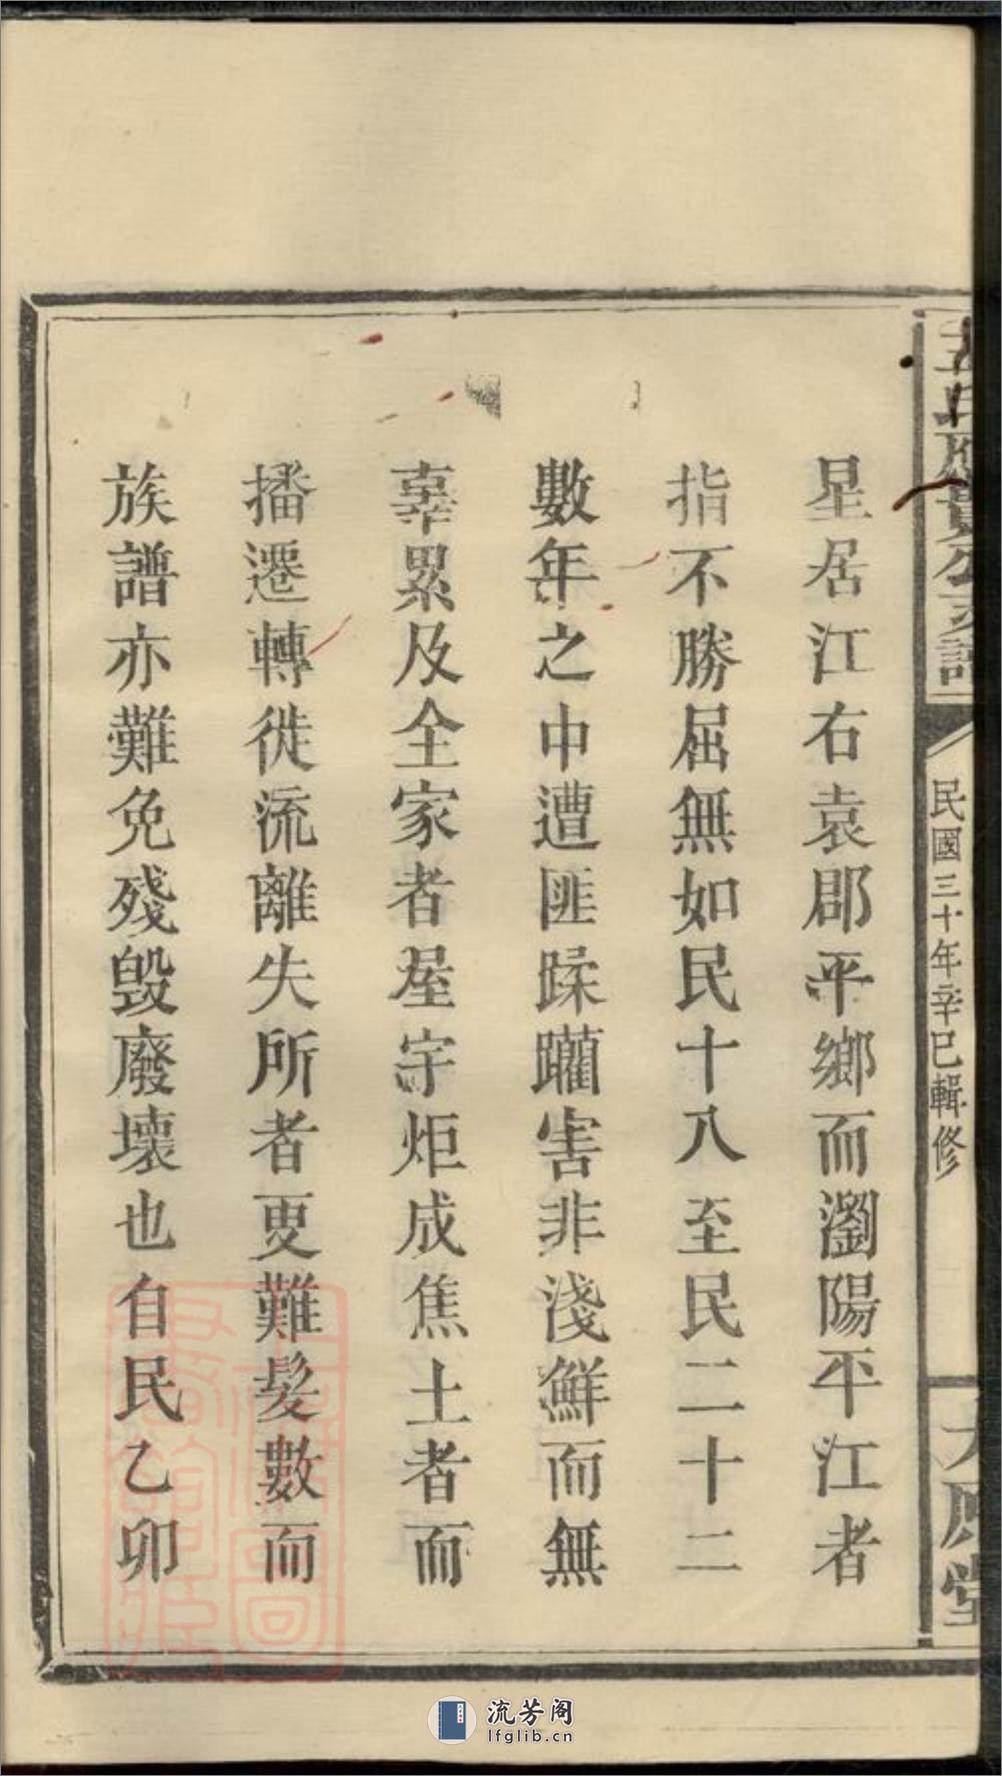 王氏應貴公支譜
民國三十年辛巳輯修
太原堂
星居江右袁郡平鄉而瀏陽平江者
指不勝屈無如民十八至民二十二
數年之中遭匪蹂躪害非淺鮮而無
辜累及全家者屋宇炬成焦土者而
播遷轉徙流離失所者更難髮數而
族譜亦難免殘毀廢壞也自民乙卯
流芳阁
lfglib.cn